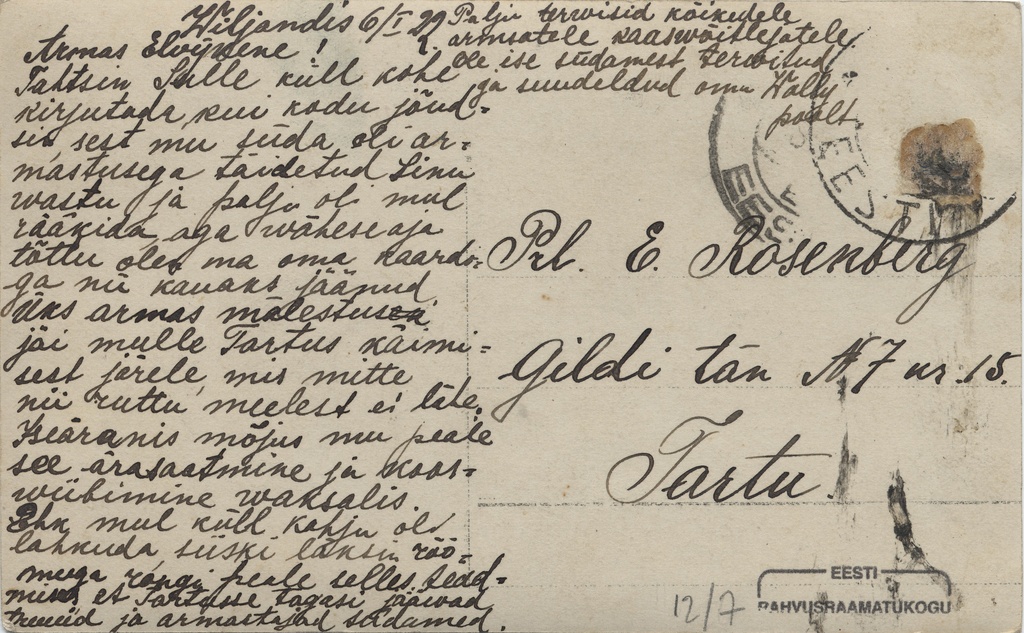 Wiljandis 6/I 29
Armas Elvyne!
Tahtsin Sulle küll kohe
kirjutada kui kodu jõud-
sin sest mu süda oli ar-
mastusega täidetud Sinu
wastu ja palju oli mul
rääkida, aga wähese aja
tõttu olen ma oma kaardi-
ga nii kauaks jäänud.
Üks armas mälestus
jäi mulle Tartus käimi-
sest järele, mis mitte
nii ruttu meelest ei lähe.
Iseäranis mõjus mu peale
see ärasaatmine ja koos-
wiibimine waksalis.
Ehk mul küll kahju oli
lahkuda, siiski läksin rõõ-
muga rongi peale selles tead-
mises et Tartusse tagasi jääwad
truuid ja armastajad südamed.
Palju terwisid kõikidele
armsatele kaaswõistlejatele,
ole ise südamest terwitud
ja suudeldud oma Wolly
poolt.
EESTI
EES
Prl. E. Rosenberg
Gildi tän № 7 kr. 15.
Tartu.
12/7
EESTI
RAHVUSRAAMATUKOGU